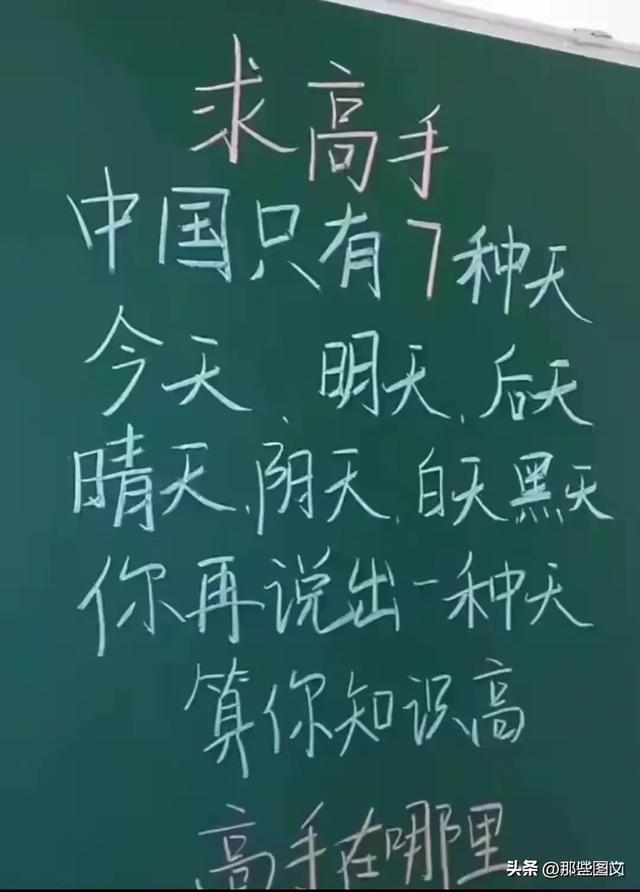 求高手
中国只有7种天
今天、明天、后天
晴天、阴天、白天黑天
你再说出一种天
算你知识高
高手在哪里
头条 @那些图文